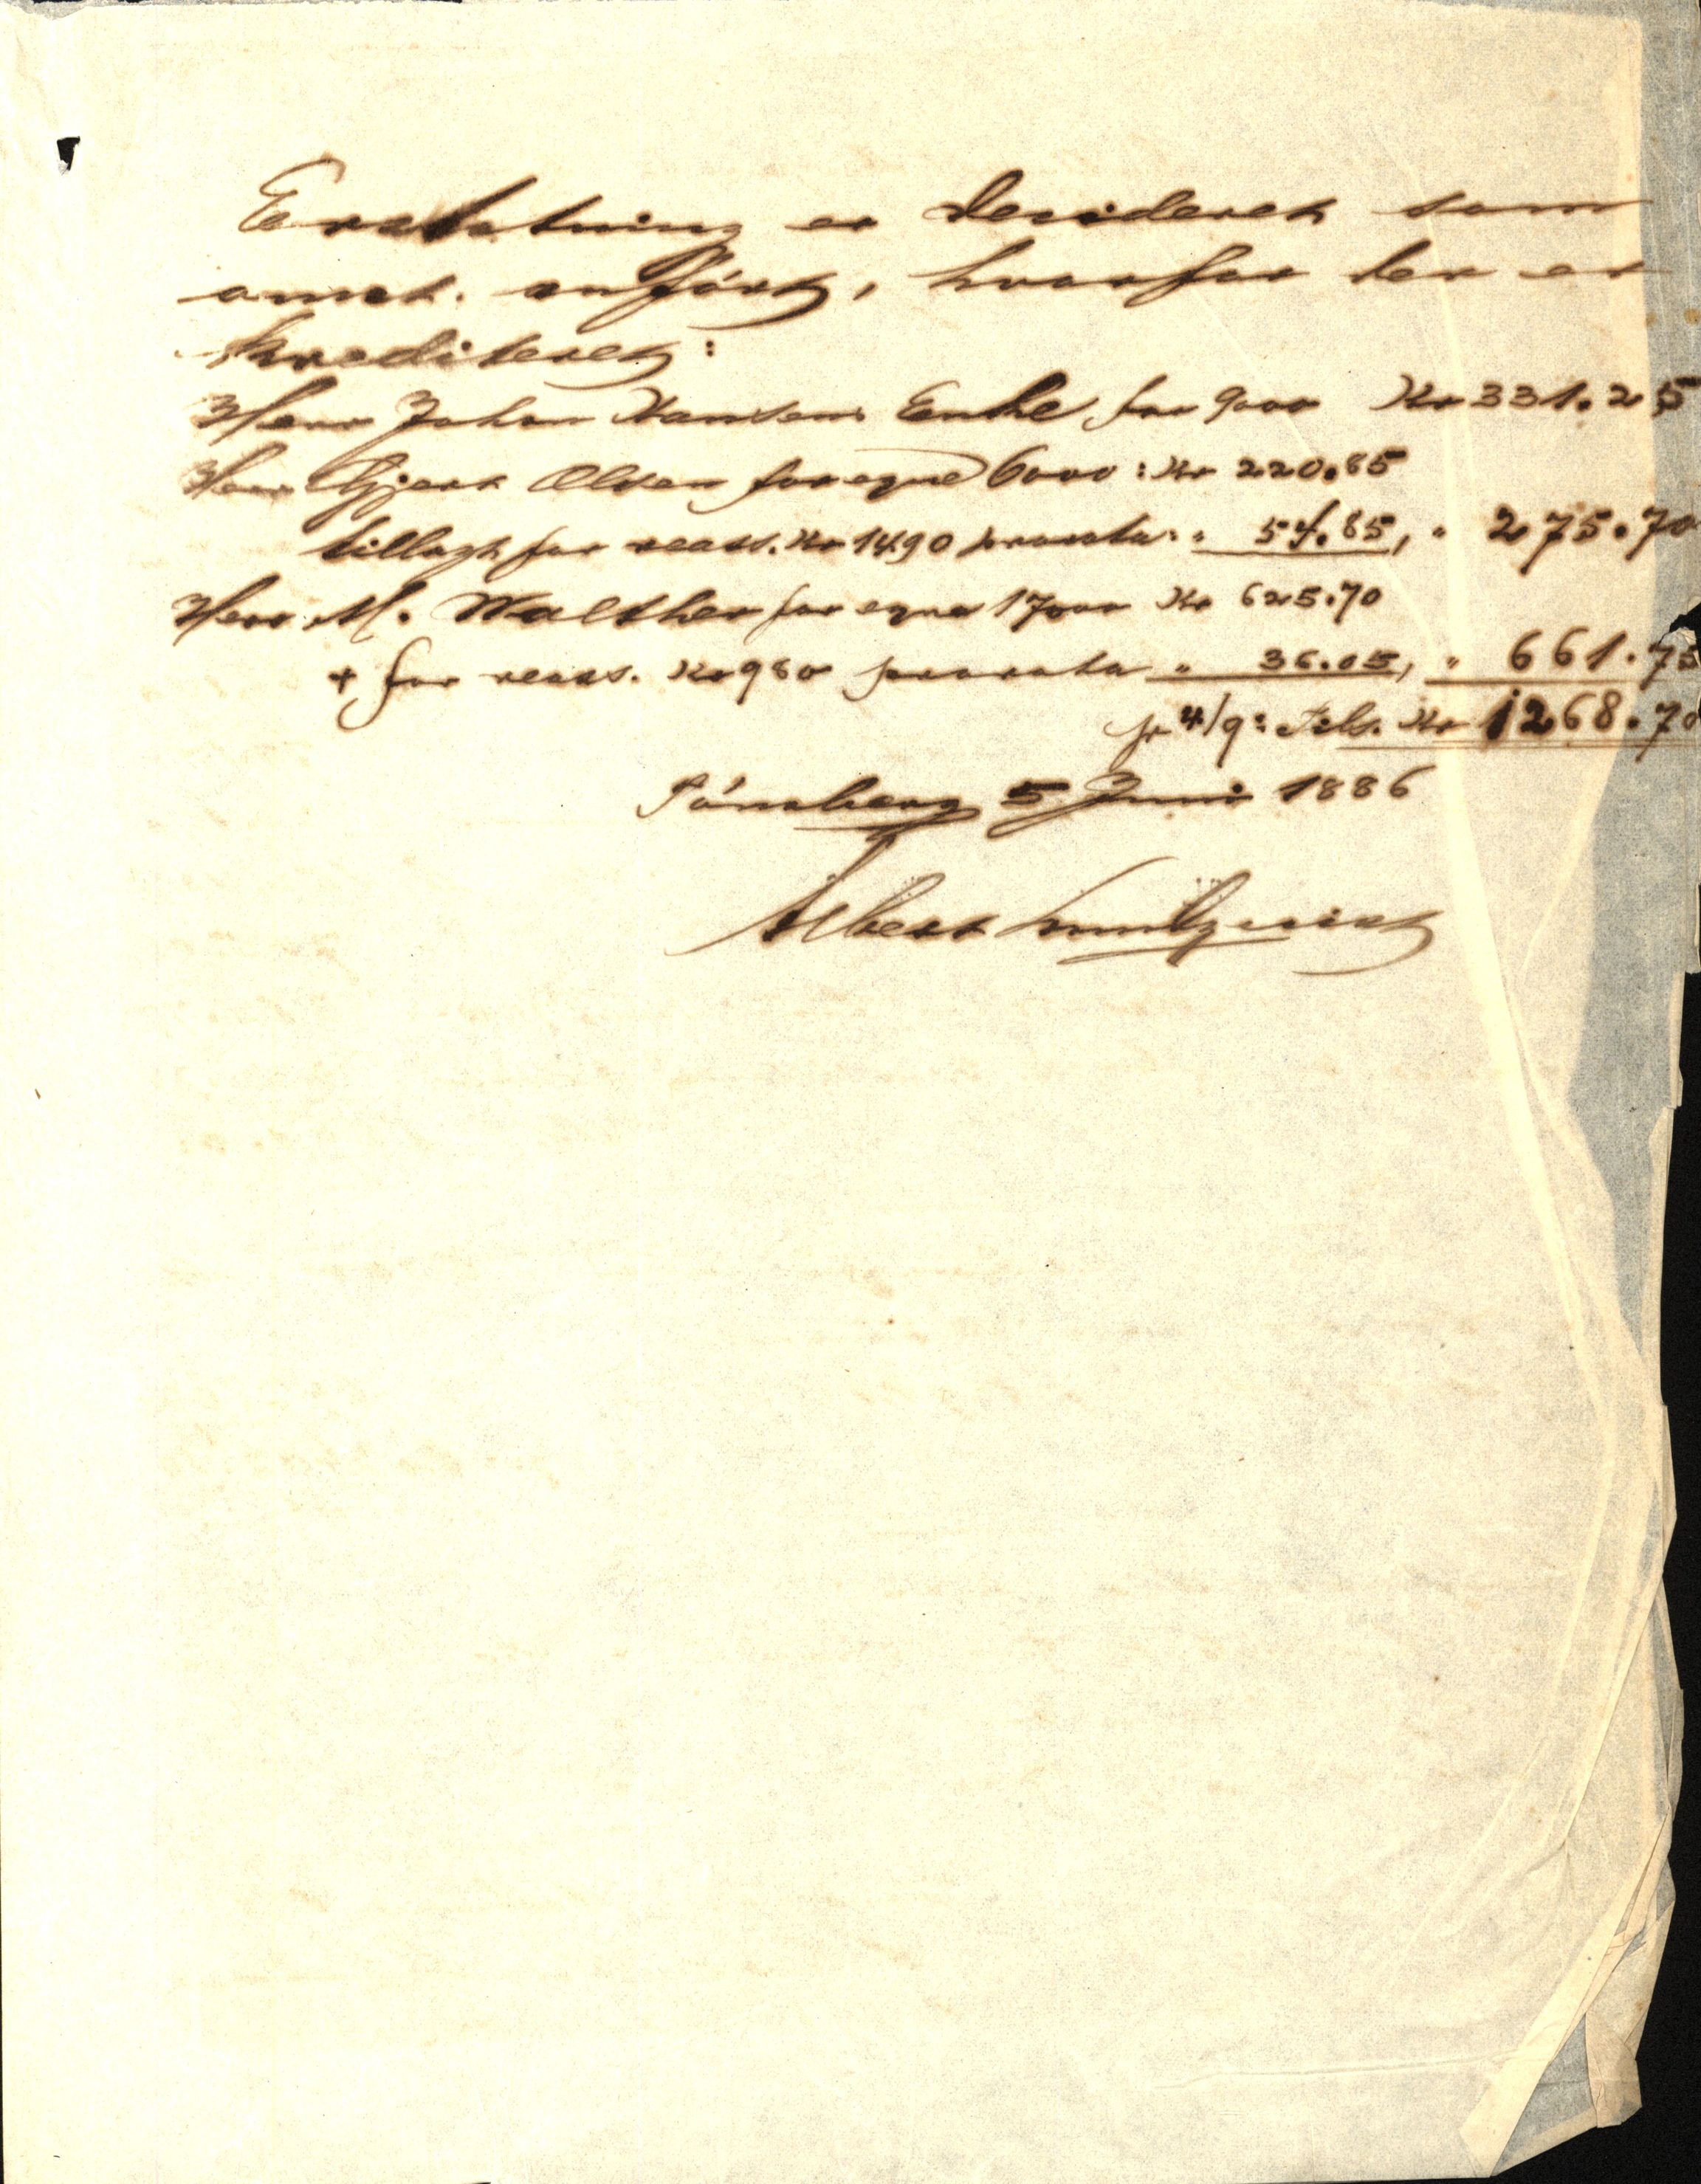 Erstatning er decideret som
omst. anført, hvorfor der er
krediteret:
Herr Johan Hansens Enke for 9000 Kr 331.25
Herr Gjert Olsen for egne 6000: Kr 220.85
tillagt for reass. Kr 1490 prorata: " 54.85, " 275.70
Herr M. Walther for egne 17000 Kr 625.70
+ for reass. Kr 980 prorata " 36.05, " 661.75
pr 4/9: Tils. Kr 1268.70
Tønsberg 5 Juni 1886
Albert